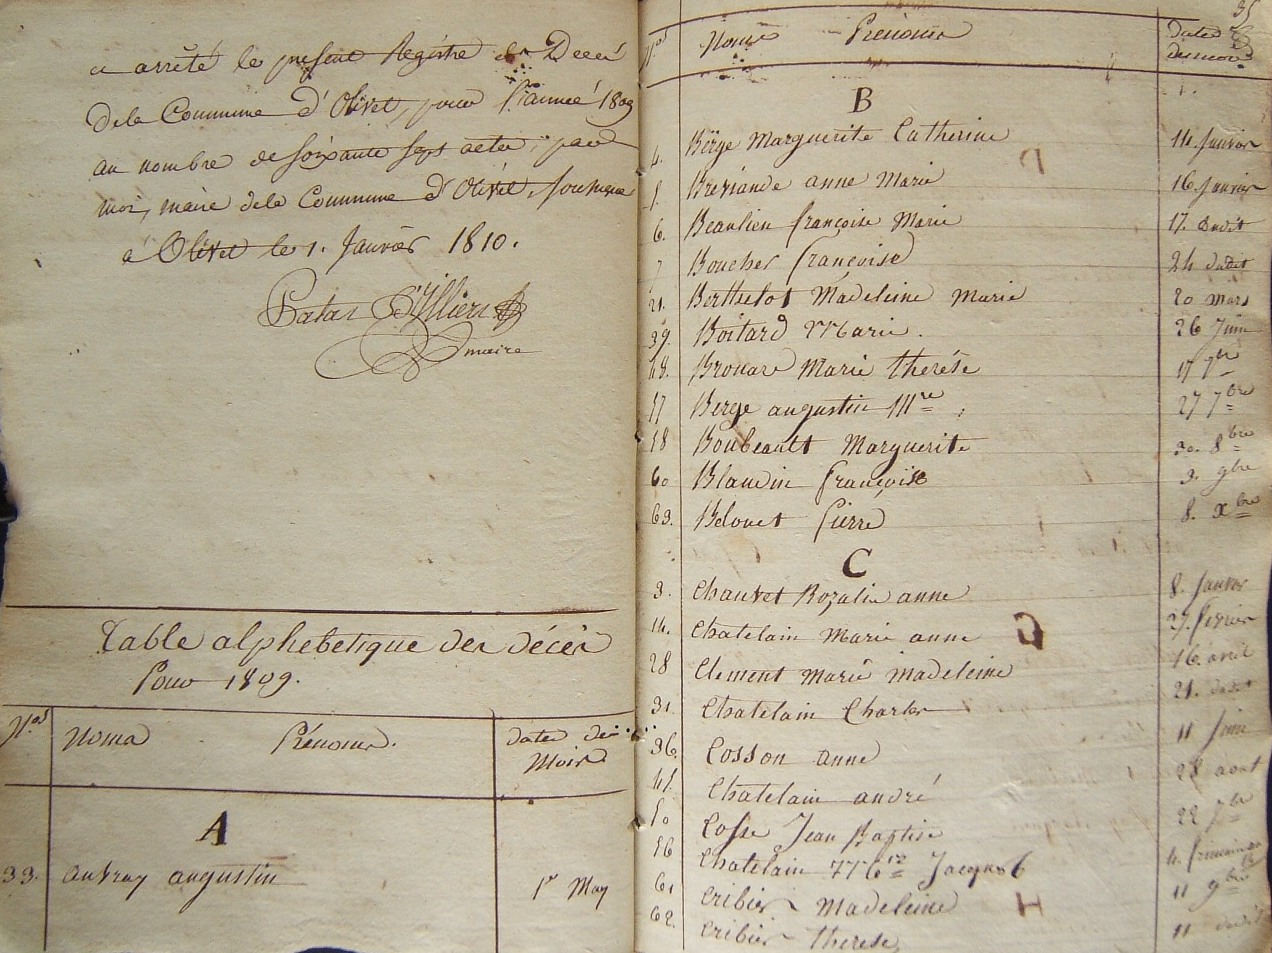 a arrêté le present Registre de Décès
de la Commune d'Olivet, pour l'année 1809
au nombre de soixante sept actes, par
moi, maire de la Commune d'Olivet, soussigné
à Olivet le 1. Janvier 1810.
Patas D'Illiers
maire
Table alphebetique des décès
Pour 1809.
Nos Noms Prénoms. dates des
Mois
A
33. auvray augustin 1er May
35
Nos Noms Prénoms dates
des mois
B
4. Bërge Marguerite Catherine 14. Janvier
5. Breviande anne Marie 16. Janvier
6. Beaulieu françoise Marie 17. dudit
7 Boucher françoise 24 dudit
21. Berthelot Madeleine Marie 20 Mars
39. Boitard Marie. 26 Juin
48. Brouard Marie thérèse 17 7bre
57 Berge augustin 27 7bre
58 Boubeault Marguerite 30. 8bre
60 Blandin françoise 3. 9bre
63. Belouet Pierre 8. Xbre
C
3. Chauvet Rozalie anne 8. Janvier
14. Chatelain Marie anne 27. février
28 Clement Marie Madeleine 16. avril
31. Chatelain Charles 21. dudit
36. Cosson anne 11 Juin
45. Chatelain andré 28 aout
50 Cosse Jean Baptiste 22 7bre
56 Chatelain Jacques 4.
61 Cribier Madeleine 11 9bre
62. Cribier therese 11 dudit